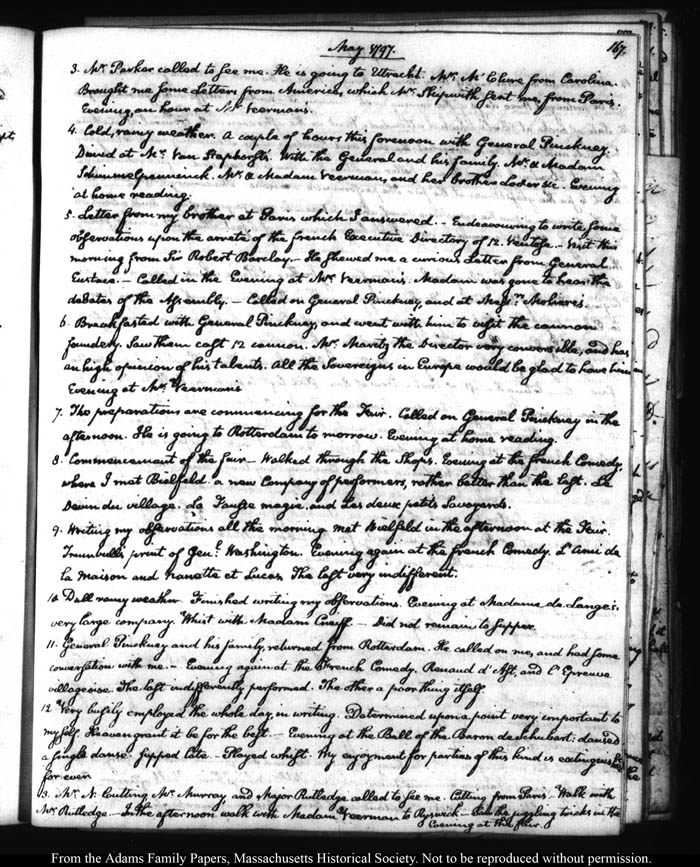 May 1797.
167.
3. Mr. Parker called to see me. He is going to Utrecht. Mr. McClure from Carolina.
Brought me some Letters from America, which Mr. Skipwith sent me, from Paris.
Evening, an hour at Mr. Veerman's.
4. Cold, rainy weather. A couple of hours this forenoon with General Pinckney.
Dined at Mr. Van Staphorst's. With the General and his family, Mr. & Madam
Schimmelpenninck. Mr. & Madam Veerman, and her brother &c. Evening
at home reading.
5. Letter from my brother at Paris which I answered. – Endeavouring to write some
observations upon the arrete of the french Executive Directory of 12. Ventose. – Visit this
morning from Sir Robert Barclay. – He shewed me a curious Letter from General
Eustace. – Called in the Evening at Mr. Veerman's. Madam was gone to hear the
debates of the Assembly. – Called on General Pinckney, and at Moliere's.
6. Breakfasted with General Pinckney, and went with him to visit the cannon
foundery. Saw them cast 12 cannon. Mr. Maritz the Director very conversible, and has
an high opinion of his talents. All the Sovereigns in Europe would be glad to have him
Evening at Mr. Veerman's
7. The preparations are commencing for the Fair. Called on General Pinckney in the
afternoon. He is going to Rotterdam to morrow. Evening at home reading.
8. Commencement of the fair – Walked through the Shops. Evening at the french Comedy,
where I met Bielfeld. a new Company of performers, rather better than the last. Le
Devin du village. La Fausse magie, and Les deux petits Savoyards.
9. Writing my observations all the morning met Bielfeld in the afternoon at the Fair.
Trumbull's print of Genl. Washington. Evening again at the french Comedy. L'Ami de
la Maison and Nanette et Lucas. The last very indifferent.
10. Dull rainy weather. Finished writing my observations. Evening at Madame de Lange's.
very large company. Whist with Madam – Did not remain to supper.
11. General Pinckney and his family, returned from Rotterdam. He called on me, and had some
conversation with me. – Evening again at the French Comedy. Renaud d'Ast, and l'Epreuve
villageoise. The last indifferently performed. The other a poor thing itself
12 Very busily employed the whole day, in writing. Determined upon a point very important to
myself. Heaven grant it be for the best – Evening at the Ball of the Baron de Schubart: danced
a single danse. Supped late. – Played whist. My enjoyment for parties of this kind is extinguished
for ever
13. Mr. N. Cutting Mr. Murray, and Major Rutledge called to see me. Cutting from Paris. Walk with
Mr. Rutledge. In the afternoon walk with Madam Veerman to Ryswick – Saw the juggling tricks in the
Evening at the fair.
From the Adams Family Papers, Massachusetts Historical Society. Not to be reproduced without permission.